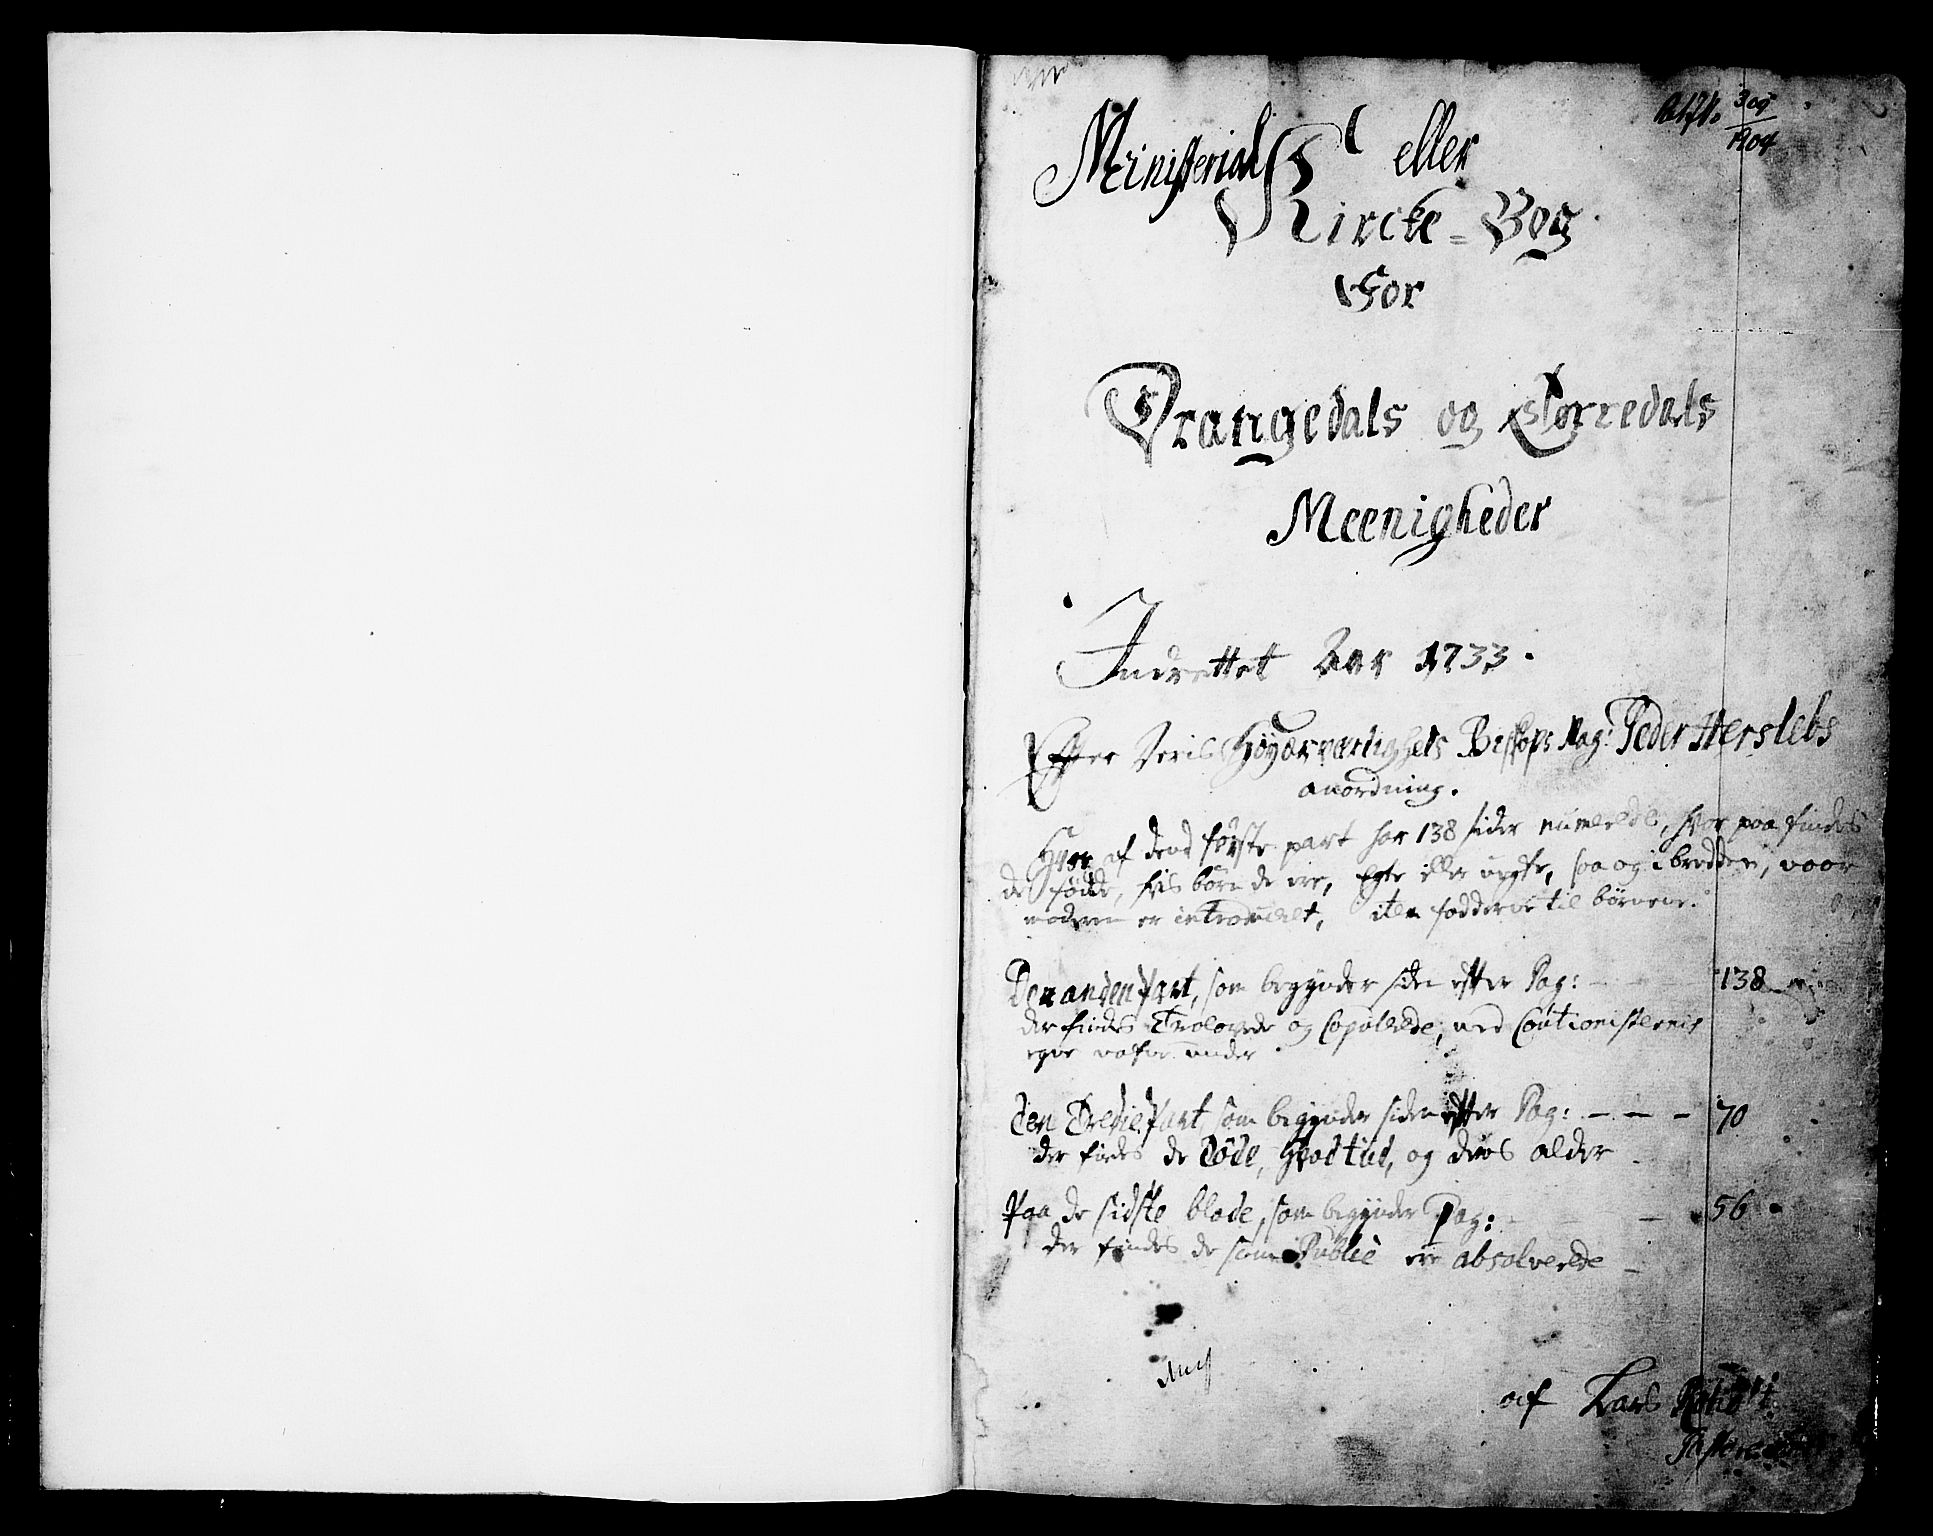 309
1904
Ministerial eller
Kircke-Bog
For
Drangedals og Tørredals
Meenigheder
Indrettet Aar 1733.
Efter Deris Høyærværdigheds Biskops Mag: Peder Herslebs
anordning.
Hvor af dend første part har 138 sider numererede, hvor paa findes
de fødde, hvis børn de ere, Egte eller uegte, saa og i bredden, naar
moderen er introduceret, item fadderne til børnene.
Den anden Part, som begynder siden efter Pag: - - - 138
der findes Trolovede og Copulerede, med Cautionisternis
egne nafne under
Den Tredie Part, som begynder siden efter Pag: - - - 70
der findes de Døde, hvad tid, og deris alder
Paa de sidste blade, som begynder Pag: - - 56
der findes de som Publice ere absolverede
af Lars